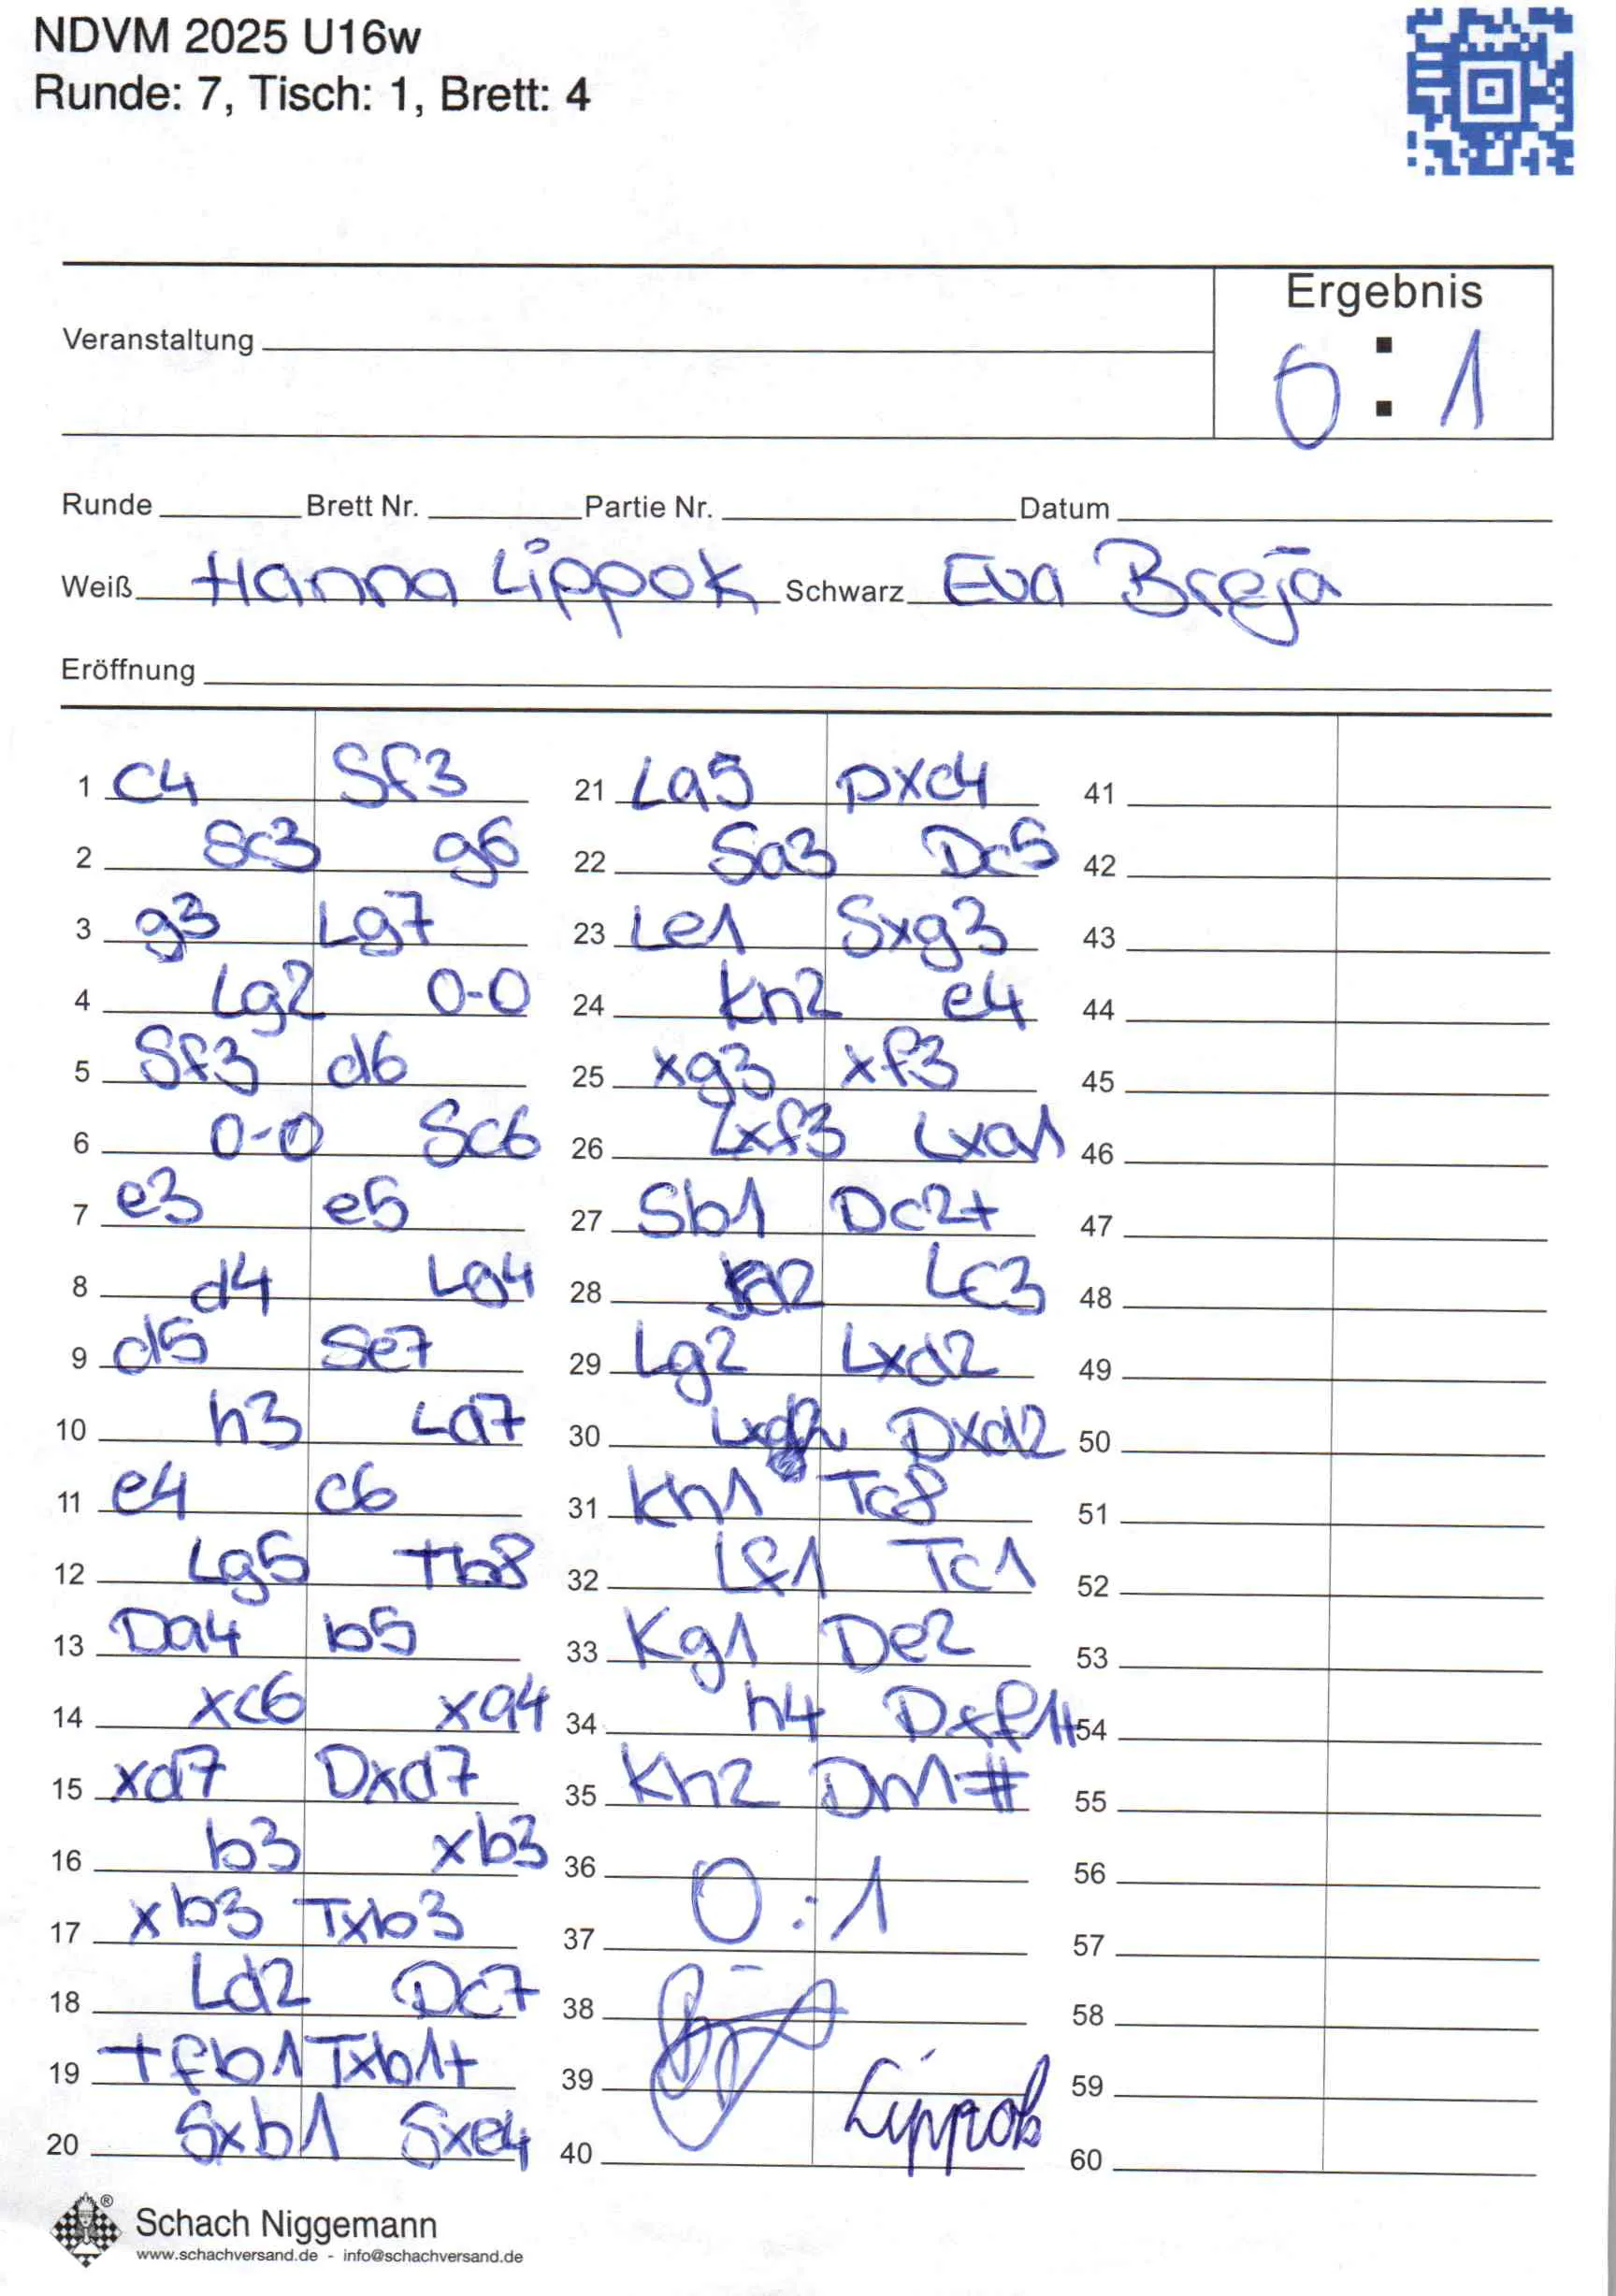 NDVM 2025 U16w
Runde: 7, Tisch: 1, Brett: 4
Ergebnis
Veranstaltung
0 : 1
Runde Brett Nr. Partie Nr. Datum
Weiß Hanna Lippok Schwarz Eva Breja
Eröffnung
1 c4 Sf3 21 La5 Dxc4 41
2 Sc3 g6 22 Sa3 Dc5 42
3 g3 Lg7 23 Le1 Sxg3 43
4 Lg2 0-0 24 Kh2 e4 44
5 Sf3 d6 25 xg3 xf3 45
6 0-0 Sc6 26 Lxf3 Lxa1 46
7 e3 e5 27 Sb1 Dc2+ 47
8 d4 Lg4 28 Lc3 48
9 d5 Se7 29 Lg2 Lxd2 49
10 h3 Ld7 30 Dxd2 50
11 e4 c6 31 Kh1 Tc8 51
12 Lg5 Tb8 32 Lf1 Tc1 52
13 Da4 b5 33 Kg1 De2 53
14 xc6 xa4 34 h4 Dxf1+ 54
15 xd7 Dxd7 35 Kh2 Dh1# 55
16 b3 xb3 36 56
17 xb3 Txb3 37 0:1 57
18 Ld2 Dc7 38 58
19 Tfb1 Txb1+ 39 59
20 Sxb1 Sxe4 40 Lippok 60
Schach Niggemann
www.schachversand.de - info@schachversand.de